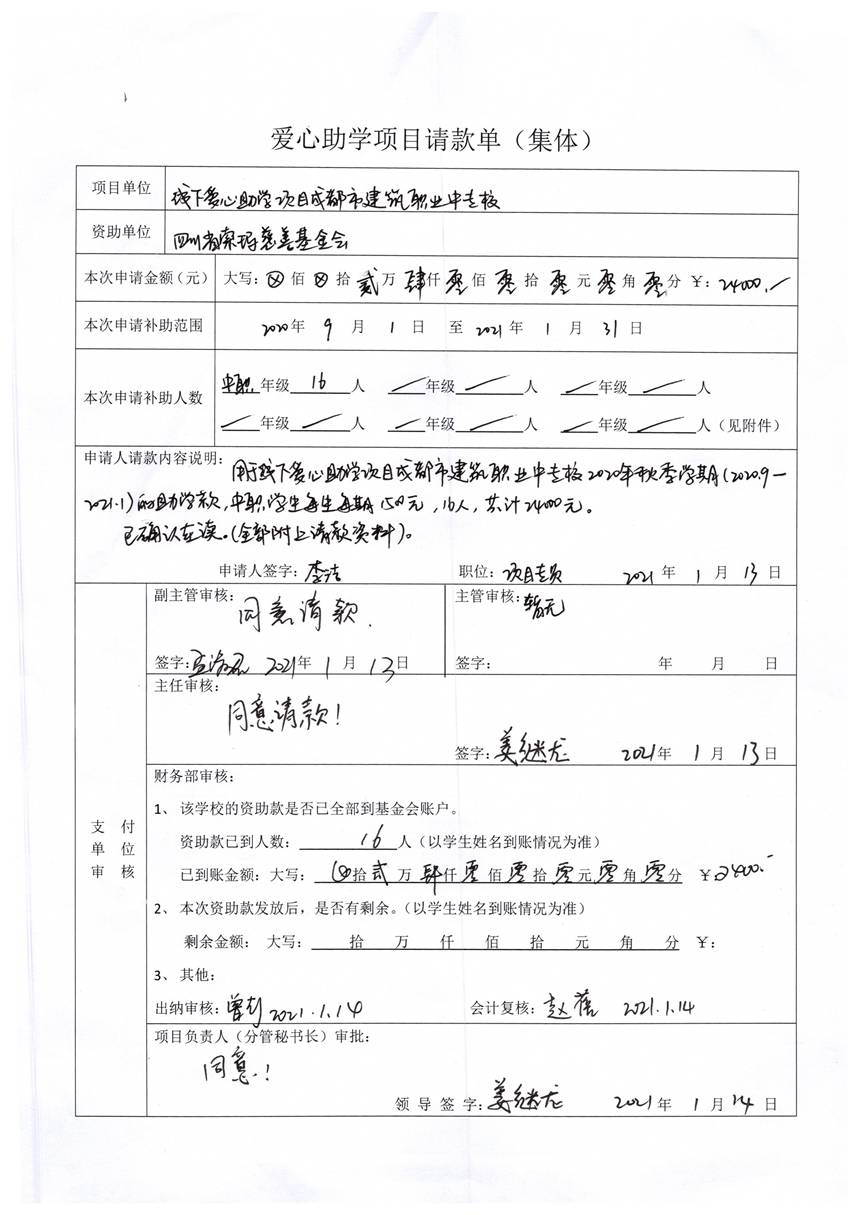 爱心助学项目请款单（集体）
项目单位 线下爱心助学项目成都市建筑职业中专校
资助单位 四川省索玛慈善基金会
本次申请金额（元） 大写：⊗ 佰 ⊗ 拾 贰 万 肆 仟 零 佰 零 拾 零 元 零 角 零 分 ￥：24000.-
本次申请补助范围 2020 年 9 月 1 日 至 2021 年 1 月 31 日
本次申请补助人数 中职 年级 16 人 ／年级／人 ／年级／人
／年级／人 ／年级／人 ／年级／人（见附件）
申请人请款内容说明：用于线下爱心助学项目成都市建筑职业中专校2020年秋季学期（2020.9—
2021.1）的助学款，中职学生每生每期1500元，16人，共计24000元。
已确认在读。（全部附上请款资料）。
申请人签字：李洁 职位：项目专员 2021 年 1 月 13 日
支付单位审核
副主管审核：同意请款. 主管审核：暂无
签字： 2021年 1 月 13日 签字： 年 月 日
主任审核：
同意请款！
签字：姜继龙 2021年 1 月 13日
财务部审核：
1、该学校的资助款是否已全部到基金会账户。
资助款已到人数：16人（以学生姓名到账情况为准）
已到账金额：大写：⊗拾贰 万 肆仟 零 佰 零 拾 零 元 零 角 零 分 ￥2400.-
2、本次资助款发放后，是否有剩余。（以学生姓名到账情况为准）
剩余金额： 大写： 拾 万 仟 佰 拾 元 角 分 ￥：
3、其他：
出纳审核： 2021.1.14 会计复核：赵蓓 2021.1.14
项目负责人（分管秘书长）审批：
同意！
领导签字：姜继龙 2021年 1 月 14 日